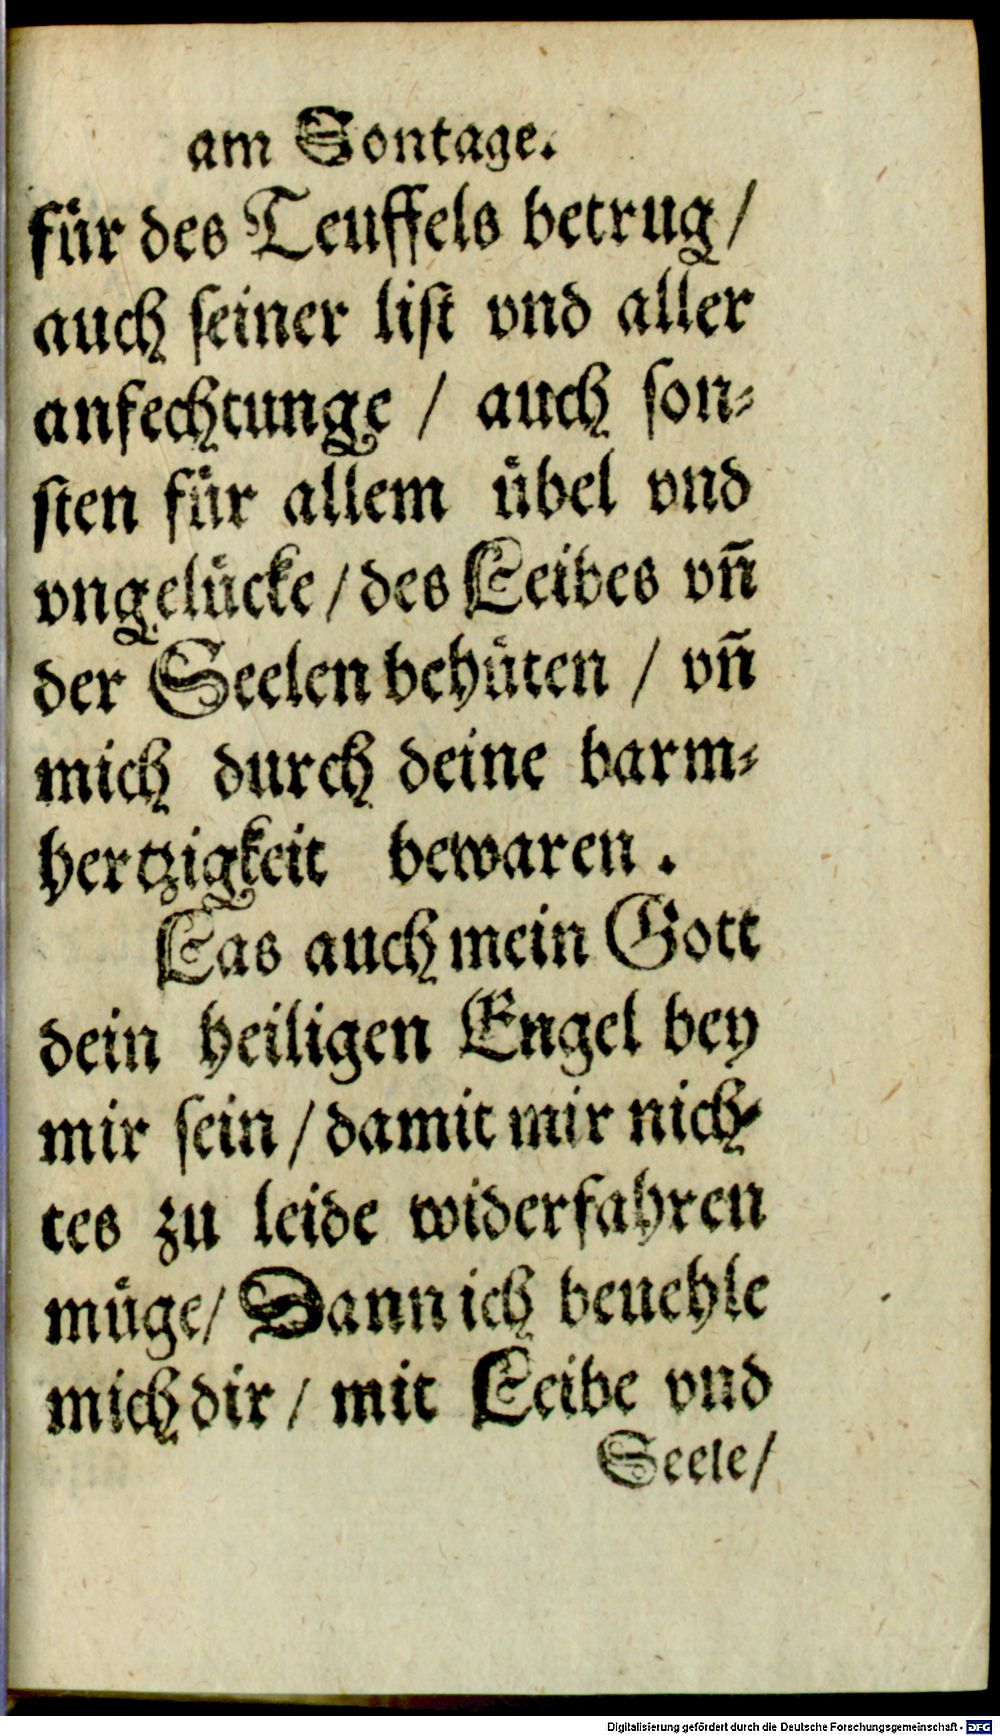 am Sontage.
für des Teuffels betrug /
auch seiner list vnd aller
anfechtunge / auch son⸗
sten für allem übel vnd
vngelücke / des Leibes vn̄
der Seelen behüten / vn̄
mich durch deine barm⸗
hertzigkeit bewaren .
Las auch mein Gott
dein heiligen Engel bey
mir sein / damit mir nich⸗
tes zu leide widerfahren
müge / Dann ich beuehle
mich dir / mit Leibe vnd
Seele /
Digitalisierung gefördert durch die Deutsche Forschungsgemeinschaft - DFG